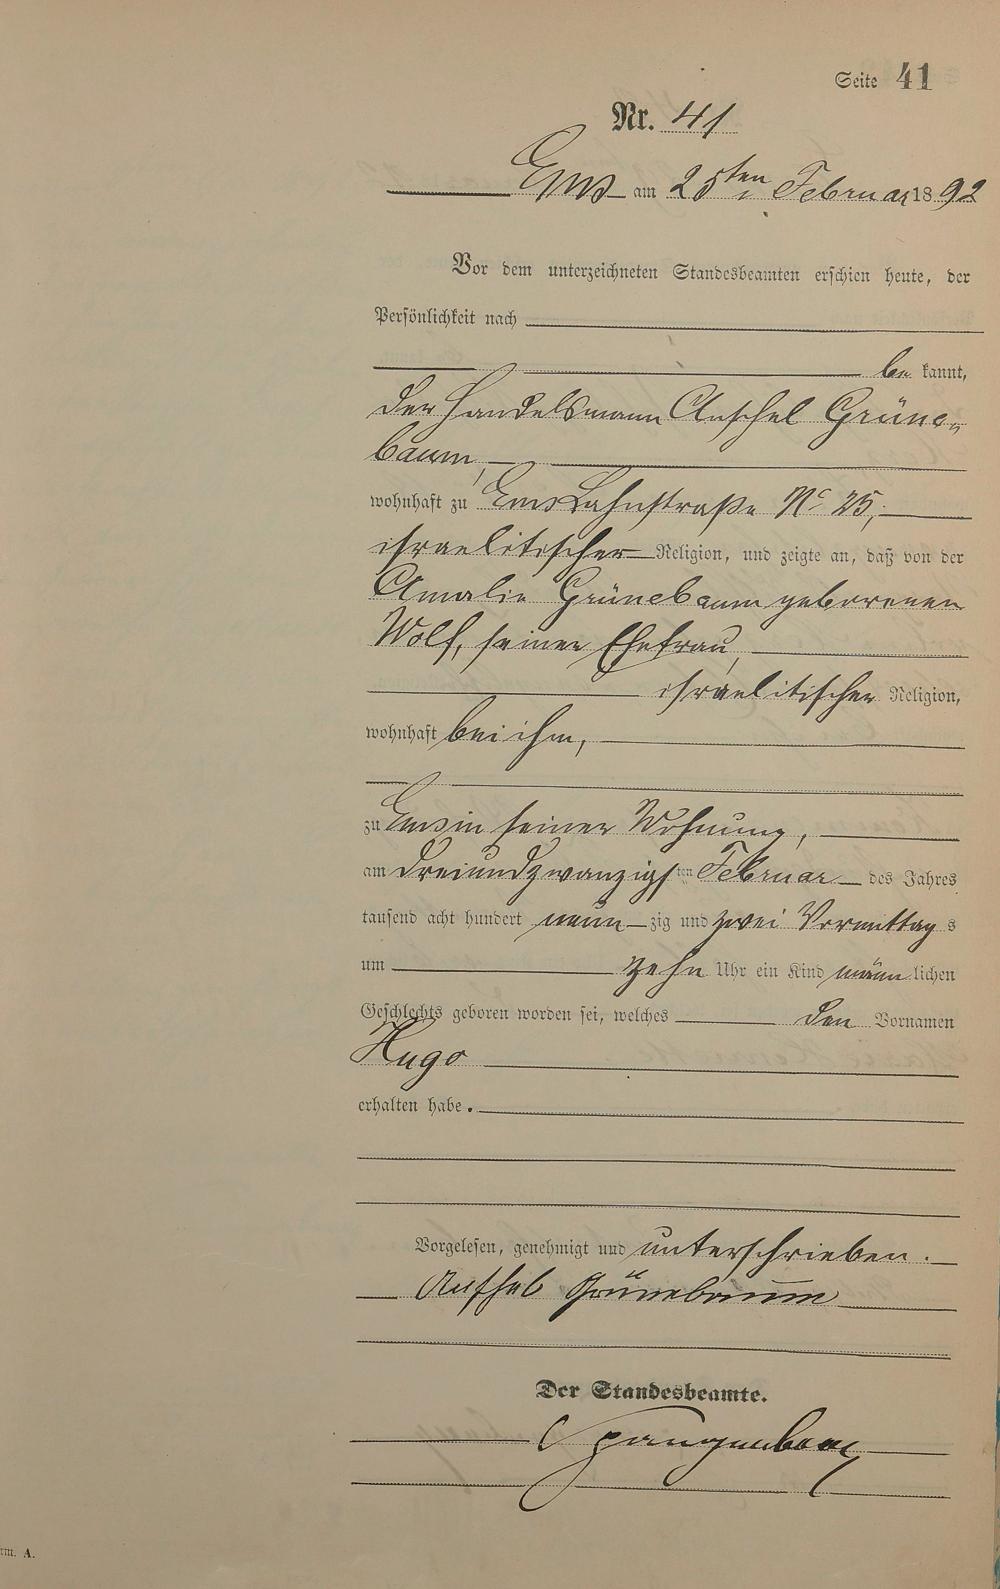 Seite 41
Nr. 41
Ems am 25ten Februar 1892
Vor dem unterzeichneten Standesbeamten erschien heute, der
Persönlichkeit nach
be kannt,
der Handelsmann Anschel Grüne-
baum,
wohnhaft zu Ems Lahnstraße No 25,
israelitischer Religion, und zeigte an, daß von der
Amalie Grünebaum geborenen
Wolf, seiner Ehefrau,
israelitischer Religion,
wohnhaft bei ihm,
zu Ems in seiner Wohnung,
am dreiundzwanzigsten Februar des Jahres
tausend acht hundert neun zig und zwei Vormittag s
um zehn Uhr ein Kind männ lichen
Geschlechts geboren worden sei, welches den Vornamen
Hugo
erhalten habe.
Vorgelesen, genehmigt und unterschrieben.
Anschel Grünebaum
Der Standesbeamte.
Spangenberg
rm. A.